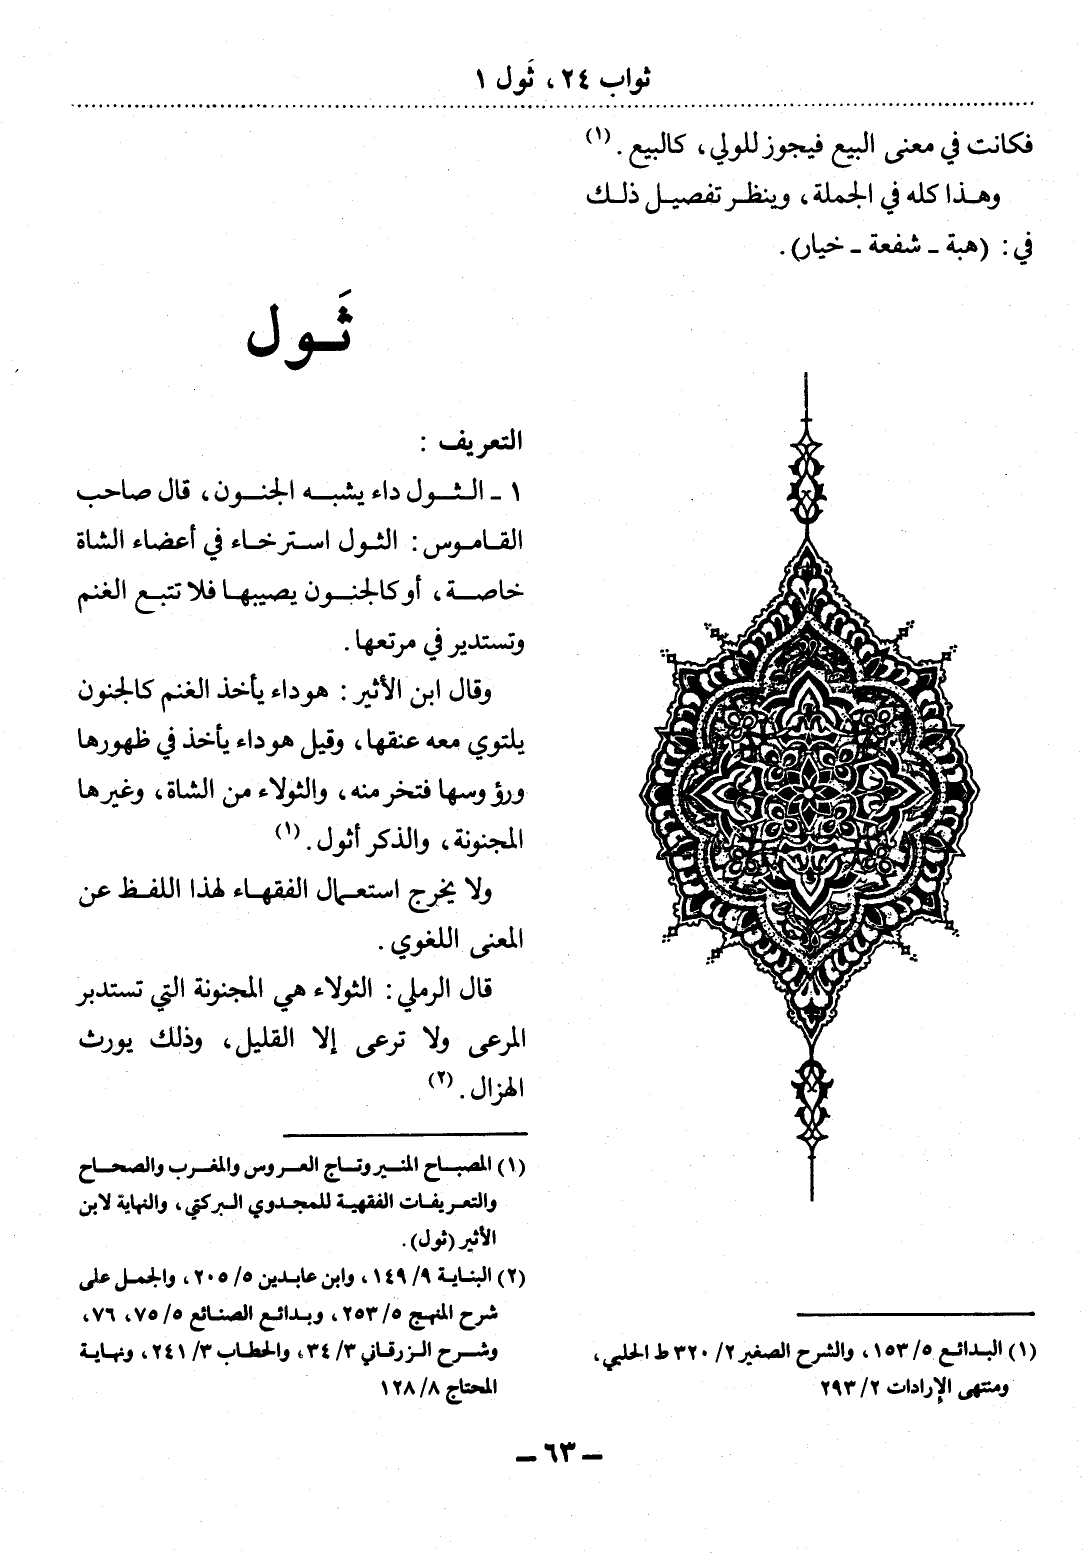 ثواب ٢٤، ثَول ١
فكانت في معنى البيع فيجوز للولي، كالبيع. (١)
وهذا كله في الجملة، وينظر تفصيل ذلك
في: (هبة ـ شفعة ـ خيار).
(١) البدائع ٥/ ١٥٣، والشرح الصغير ٢/ ٣٢٠ ط الحلبي،
ومنتهى الإرادات ٢/ ٢٩٣
ثَول
التعريف :
١ ـ الثول داء يشبه الجنون، قال صاحب
القاموس: الثول استرخاء في أعضاء الشاة
خاصة، أو كالجنون يصيبها فلا تتبع الغنم
وتستدير في مرتعها.
وقال ابن الأثير: هو داء يأخذ الغنم كالجنون
يلتوي معه عنقها، وقيل هو داء يأخذ في ظهورها
ورؤوسها فتخر منه، والثولاء من الشاة، وغيرها
المجنونة، والذكر أثول. (١)
ولا يخرج استعمال الفقهاء لهذا اللفظ عن
المعنى اللغوي.
قال الرملي: الثولاء هي المجنونة التي تستدبر
المرعى ولا ترعى إلا القليل، وذلك يورث
الهزال. (٢)
(١) المصباح المنير وتاج العروس والمغرب والصحاح
والتعريفات الفقهية للمجدوي البركتي، والنهاية لابن
الأثير (ثول).
(٢) البناية ٩/ ١٤٩، وابن عابدين ٥/ ٢٠٥، والجمل على
شرح المنهج ٥/ ٢٥٣، وبدائع الصنائع ٥/ ٧٥، ٧٦،
وشرح الزرقاني ٣/ ٣٤، والحطاب ٣/ ٢٤١، ونهاية
المحتاج ٨/ ١٢٨
ـ ٦٣ ـ